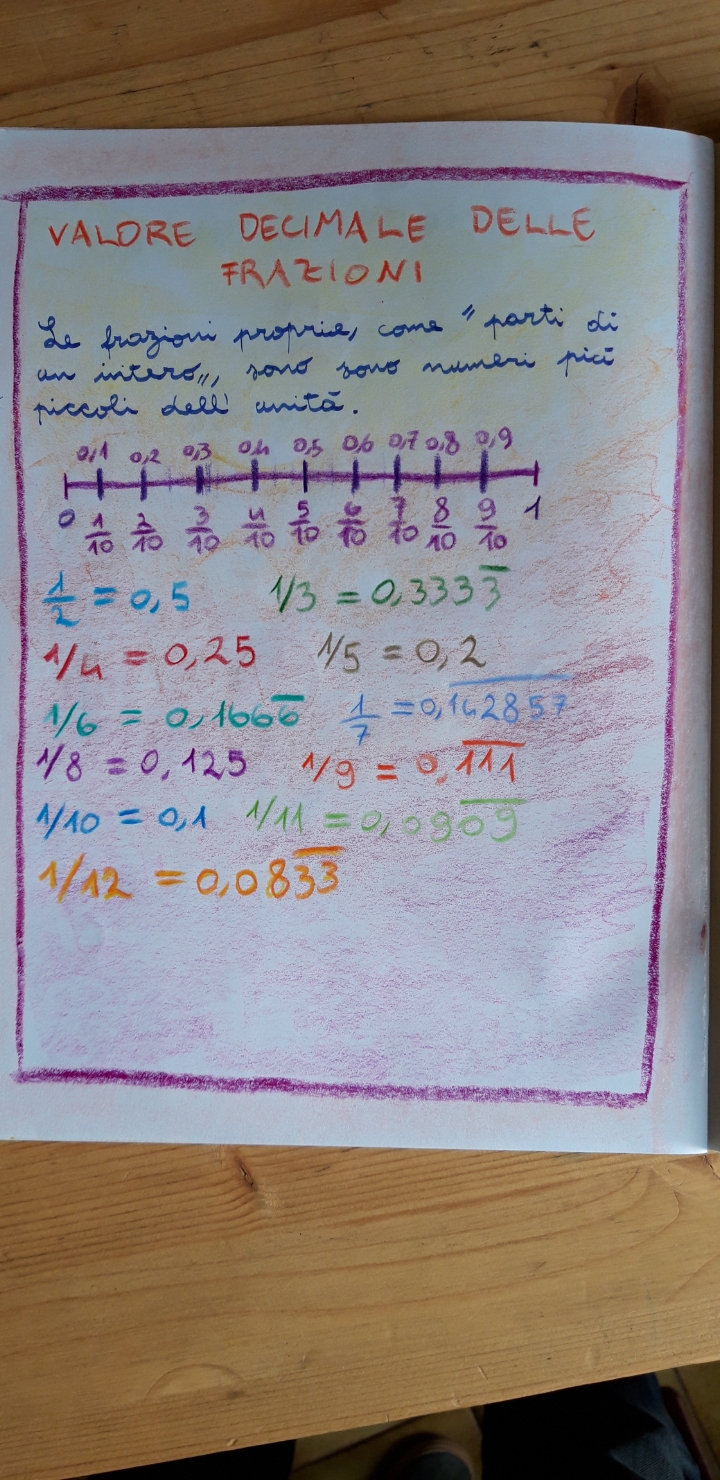 VALORE DECIMALE DELLE
FRAZIONI
Le frazioni proprie, come " parti di
un intero,,, sono sono numeri più
piccoli dell' unità.
0,1 0,2 0,3 0,4 0,5 0,6 0,7 0,8 0,9
0 1/10 2/10 3/10 4/10 5/10 6/10 7/10 8/10 9/10 1
1/2 = 0,5 1/3 = 0,3333̅
1/4 = 0,25 1/5 = 0,2
1/6 = 0,1666̅ 1/7 = 0,1̅4̅2̅8̅5̅7̅
1/8 = 0,125 1/9 = 0,1̅1̅1̅
1/10 = 0,1 1/11 = 0,090̅9̅
1/12 = 0,083̅3̅